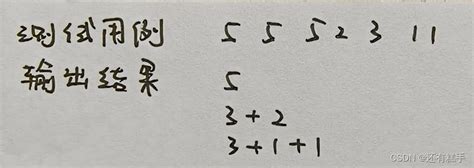 测试用例 5 5 5 2 3 1 1
输出结果 5
3+2
3+1+1
CSDN @还有糕手